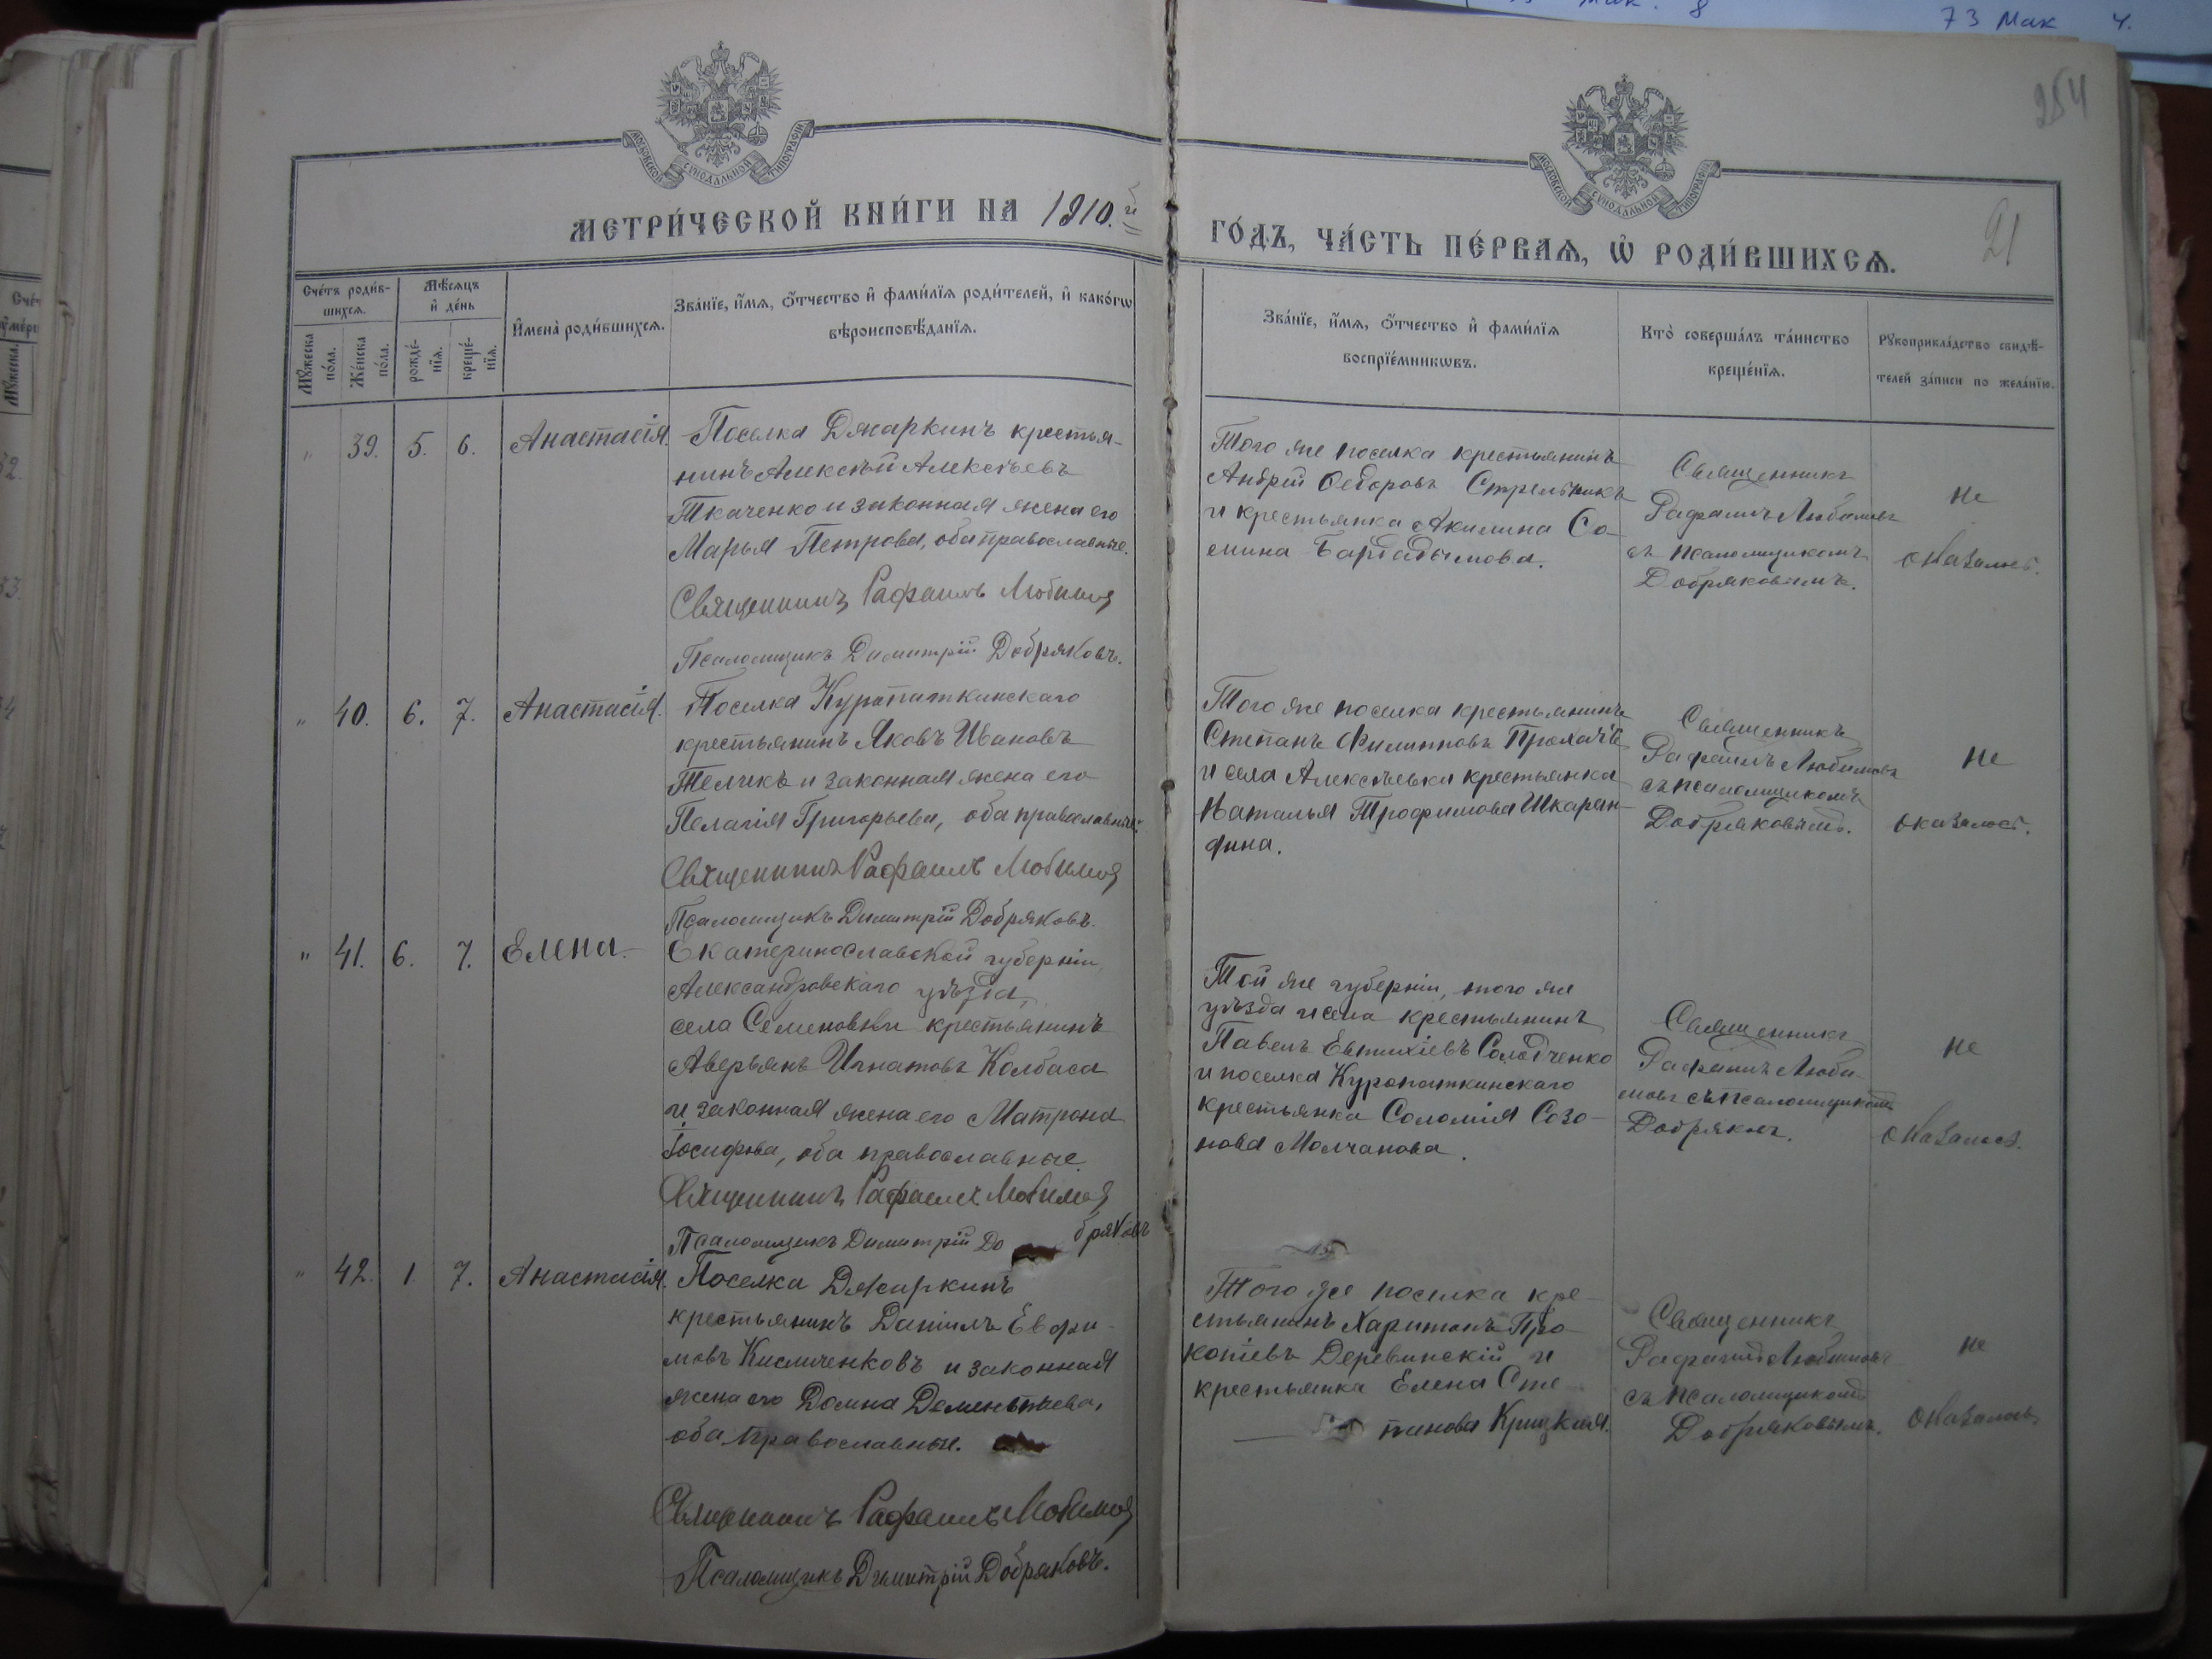 73 Мак 4.
254
МОСКОВСКОЙ СУНОДАЛЬНОЙ ТИПОГРАФІИ
МОСКОВСКОЙ СУНОДАЛЬНОЙ ТИПОГРАФІИ
МЕТРИ́ЧЕСКОЙ КНИ́ГИ НА 1910.й
ГО́ДЪ, ЧА́СТЬ ПЕ́РВАѦ, Ѡ РОДИ́ВШИХСѦ.
21
Сче́тъ роди́в-
шихсѧ.
Мѣ́сѧцъ
и҆ де́нь
Мꙋ́жеска
по́ла.
Же́нска
по́ла.
рожде́-
нїѧ.
креще́-
нїѧ.
И҆мена̀ роди́вшихсѧ.
Зва́нїе, и҆́мѧ, ѻ҆́тчество и҆ фами́лїѧ роди́телей, и҆ како́гѡ
вѣроисповѣ́данїѧ.
Зва́нїе, и҆́мѧ, ѻ҆́тчество и҆ фами́лїѧ
воспрїе́мникѡвъ.
Кто̀ соверша́лъ та́инство
креще́нїѧ.
Рꙋкоприкла́дство свидѣ́-
телей за́писи по жела́нїю.
" 39. 5. 6. Анастасія.
Поселка Джаркинъ крестья-
нинъ Алексѣй Алексѣевъ
Ткаченко и законная жена его
Марья Петрова, оба православные.
Священникъ Рафаилъ Любимовъ
Псаломщикъ Димитрій Добряковъ.
Того же поселка крестьянинъ
Андрей Ѳедоровъ Стрельникъ
и крестьянка Акилина Со-
мина Барбадымова.
Священникъ
Рафаилъ Любимовъ
съ псаломщикомъ
Добряковымъ.
не
оказалось.
" 40. 6. 7. Анастасія.
Поселка Куропаткинскаго
крестьянинъ Яковъ Ивановъ
Теликъ и законная жена его
Пелагія Григорьева, оба православные.
Священникъ Рафаилъ Любимовъ
Псаломщикъ Димитрій Добряковъ.
Того же поселка крестьянинъ
Степанъ Филипповъ
и села Алексѣевки крестьянка
Наталья Трофимова Шкаран-
дина.
Священникъ
Рафаилъ Любимовъ
съ псаломщикомъ
Добряковымъ.
не
оказалось.
" 41. 6. 7. Елена.
Екатеринославской губерніи,
Александровскаго уѣзда,
села Семеновки крестьянинъ
Аверьянъ Игнатовъ Колбаса
и законная жена его Матрона
Іосифова, оба православные.
Священникъ Рафаилъ Любимовъ
Псаломщикъ Димитрій До бряковъ
Той же губерніи, того же
уѣзда и села крестьянинъ
Павелъ Евтихіевъ Солодченко
и поселка Куропаткинскаго
крестьянка Соломія Созо-
нова Молчанова.
Священникъ
Рафаилъ Люби-
мовъ съ псаломщикомъ
Добряковъ.
не
оказалось.
" 42. 1 7. Анастасія.
Поселка Джаркинъ
крестьянинъ Даніилъ Евфи-
мовъ Кисличенковъ и законная
жена его Домна Дементьева,
оба православные.
Священникъ Рафаилъ Любимовъ
Псаломщикъ Димитрій Добряковъ.
Того же поселка кре-
стьянинъ Харитонъ Про-
копіевъ Деревинскій и
крестьянка Елена Сте-
панова Крицкая.
Священникъ
Рафаилъ Любимовъ
съ псаломщикомъ
Добряковымъ.
не
оказалось.